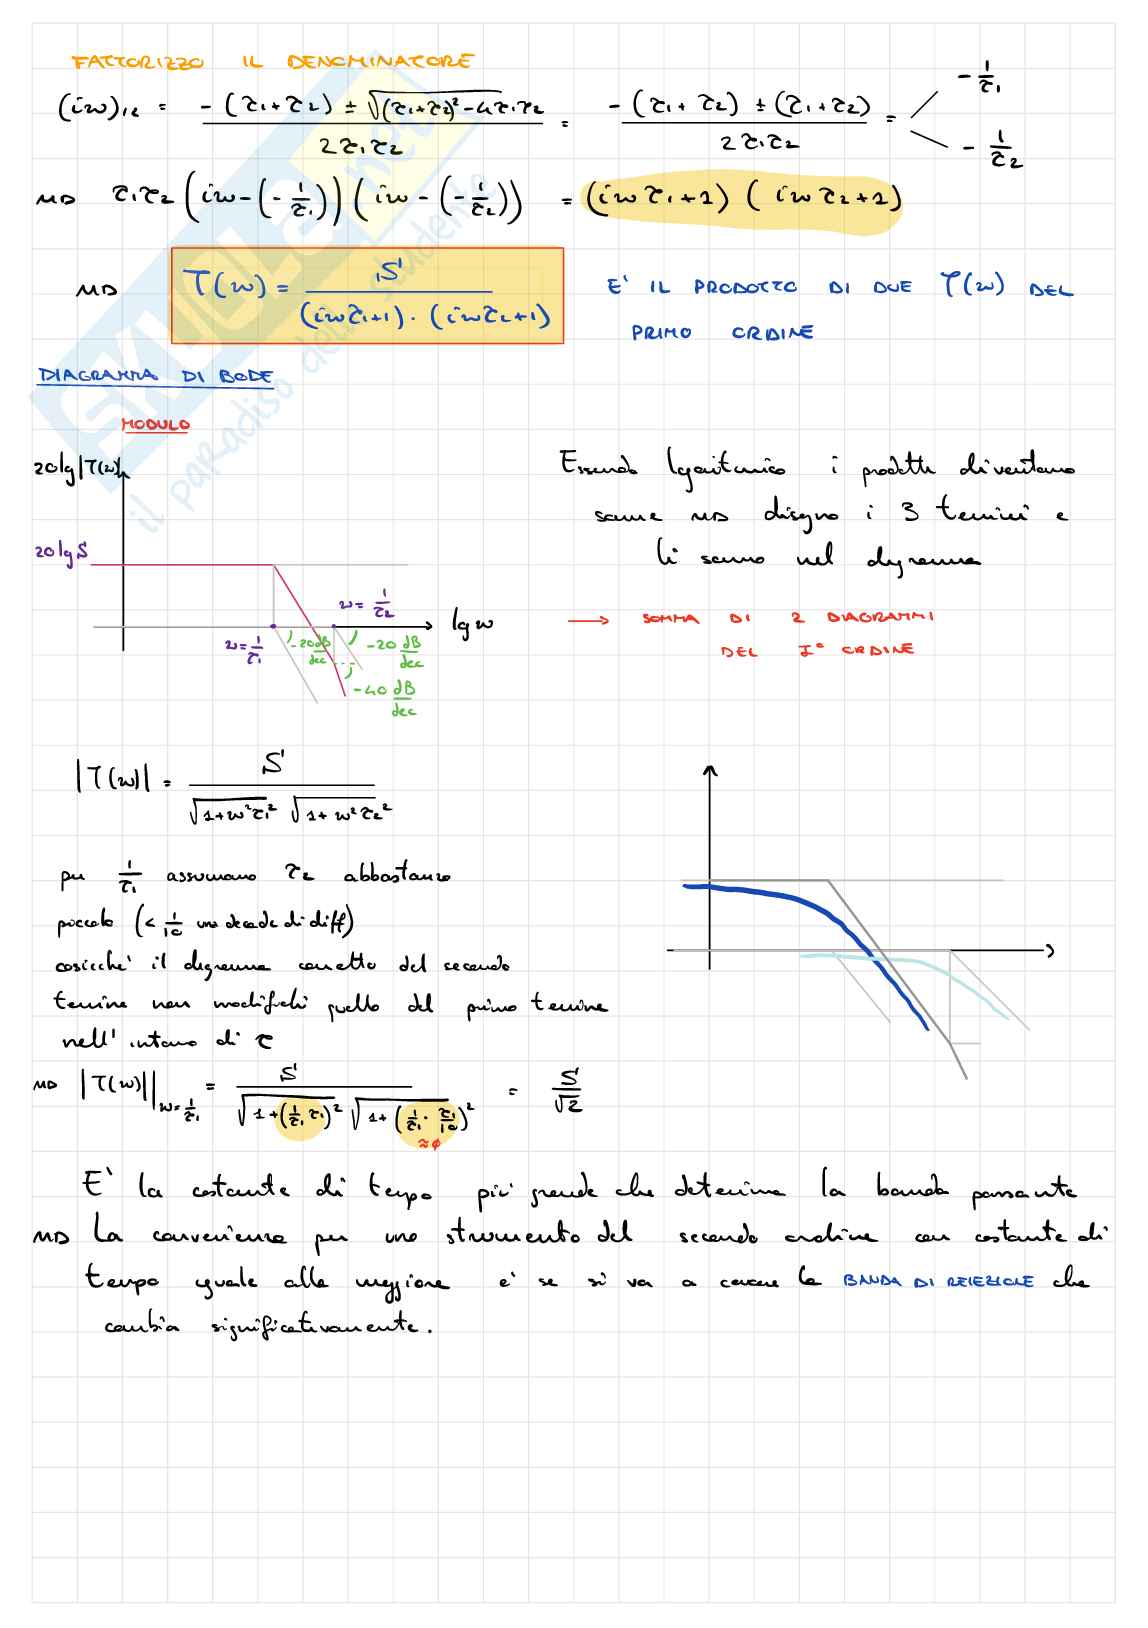 FATTORIZZO IL DENOMINATORE
(iω)₁₂ = -(τ₁+τ₂) ± √((τ₁+τ₂)²-4τ₁τ₂) / 2τ₁τ₂ = -(τ₁+τ₂) ± (τ₁+τ₂) / 2τ₁τ₂ = -1/τ₁ -1/τ₂
⇒ τ₁τ₂ (iω-(-1/τ₁)) (iω-(-1/τ₂)) = (iωτ₁+1) (iωτ₂+1)
⇒ T(ω) = S / (iωτ₁+1)·(iωτ₂+1) E' IL PRODOTTO DI DUE T(ω) DEL
PRIMO ORDINE
DIAGRAMMA DI BODE
MODULO
20lg|T(ω)|
20lgS
ω=1/τ₁
ω=1/τ₂
lgω
-20 dB/dec
-20 dB/dec
-40 dB/dec
Essendo logaritmico i prodotti diventano
somme ⇒ disegno i 3 termini e
li sommo nel diagramma
→ SOMMA DI 2 DIAGRAMMI
DEL I° ORDINE
|T(ω)| = S / √(1+ω²τ₁²) √(1+ω²τ₂²)
per 1/τ₁ assumiamo τ₂ abbastanza
piccolo (< 1/10 una decade di diff)
cosicchè il diagramma corretto del secondo
termine non modifichi quello del primo termine
nell'intorno di τ
⇒ |T(ω)||ω=1/τ₁ = S / √(1+(1/τ₁ τ₁)²) √(1+(1/τ₁ · τ₁/10)²) = S/√2
≈ϕ
E' la costante di tempo più grande che determina la banda passante
⇒ La convenienza per uno strumento del secondo ordine con costante di
tempo uguale alla maggiore e' se si va a cercare la BANDA DI REIEZIONE che
cambia significativamente.
SKUOLA.net
il paradiso dello studente